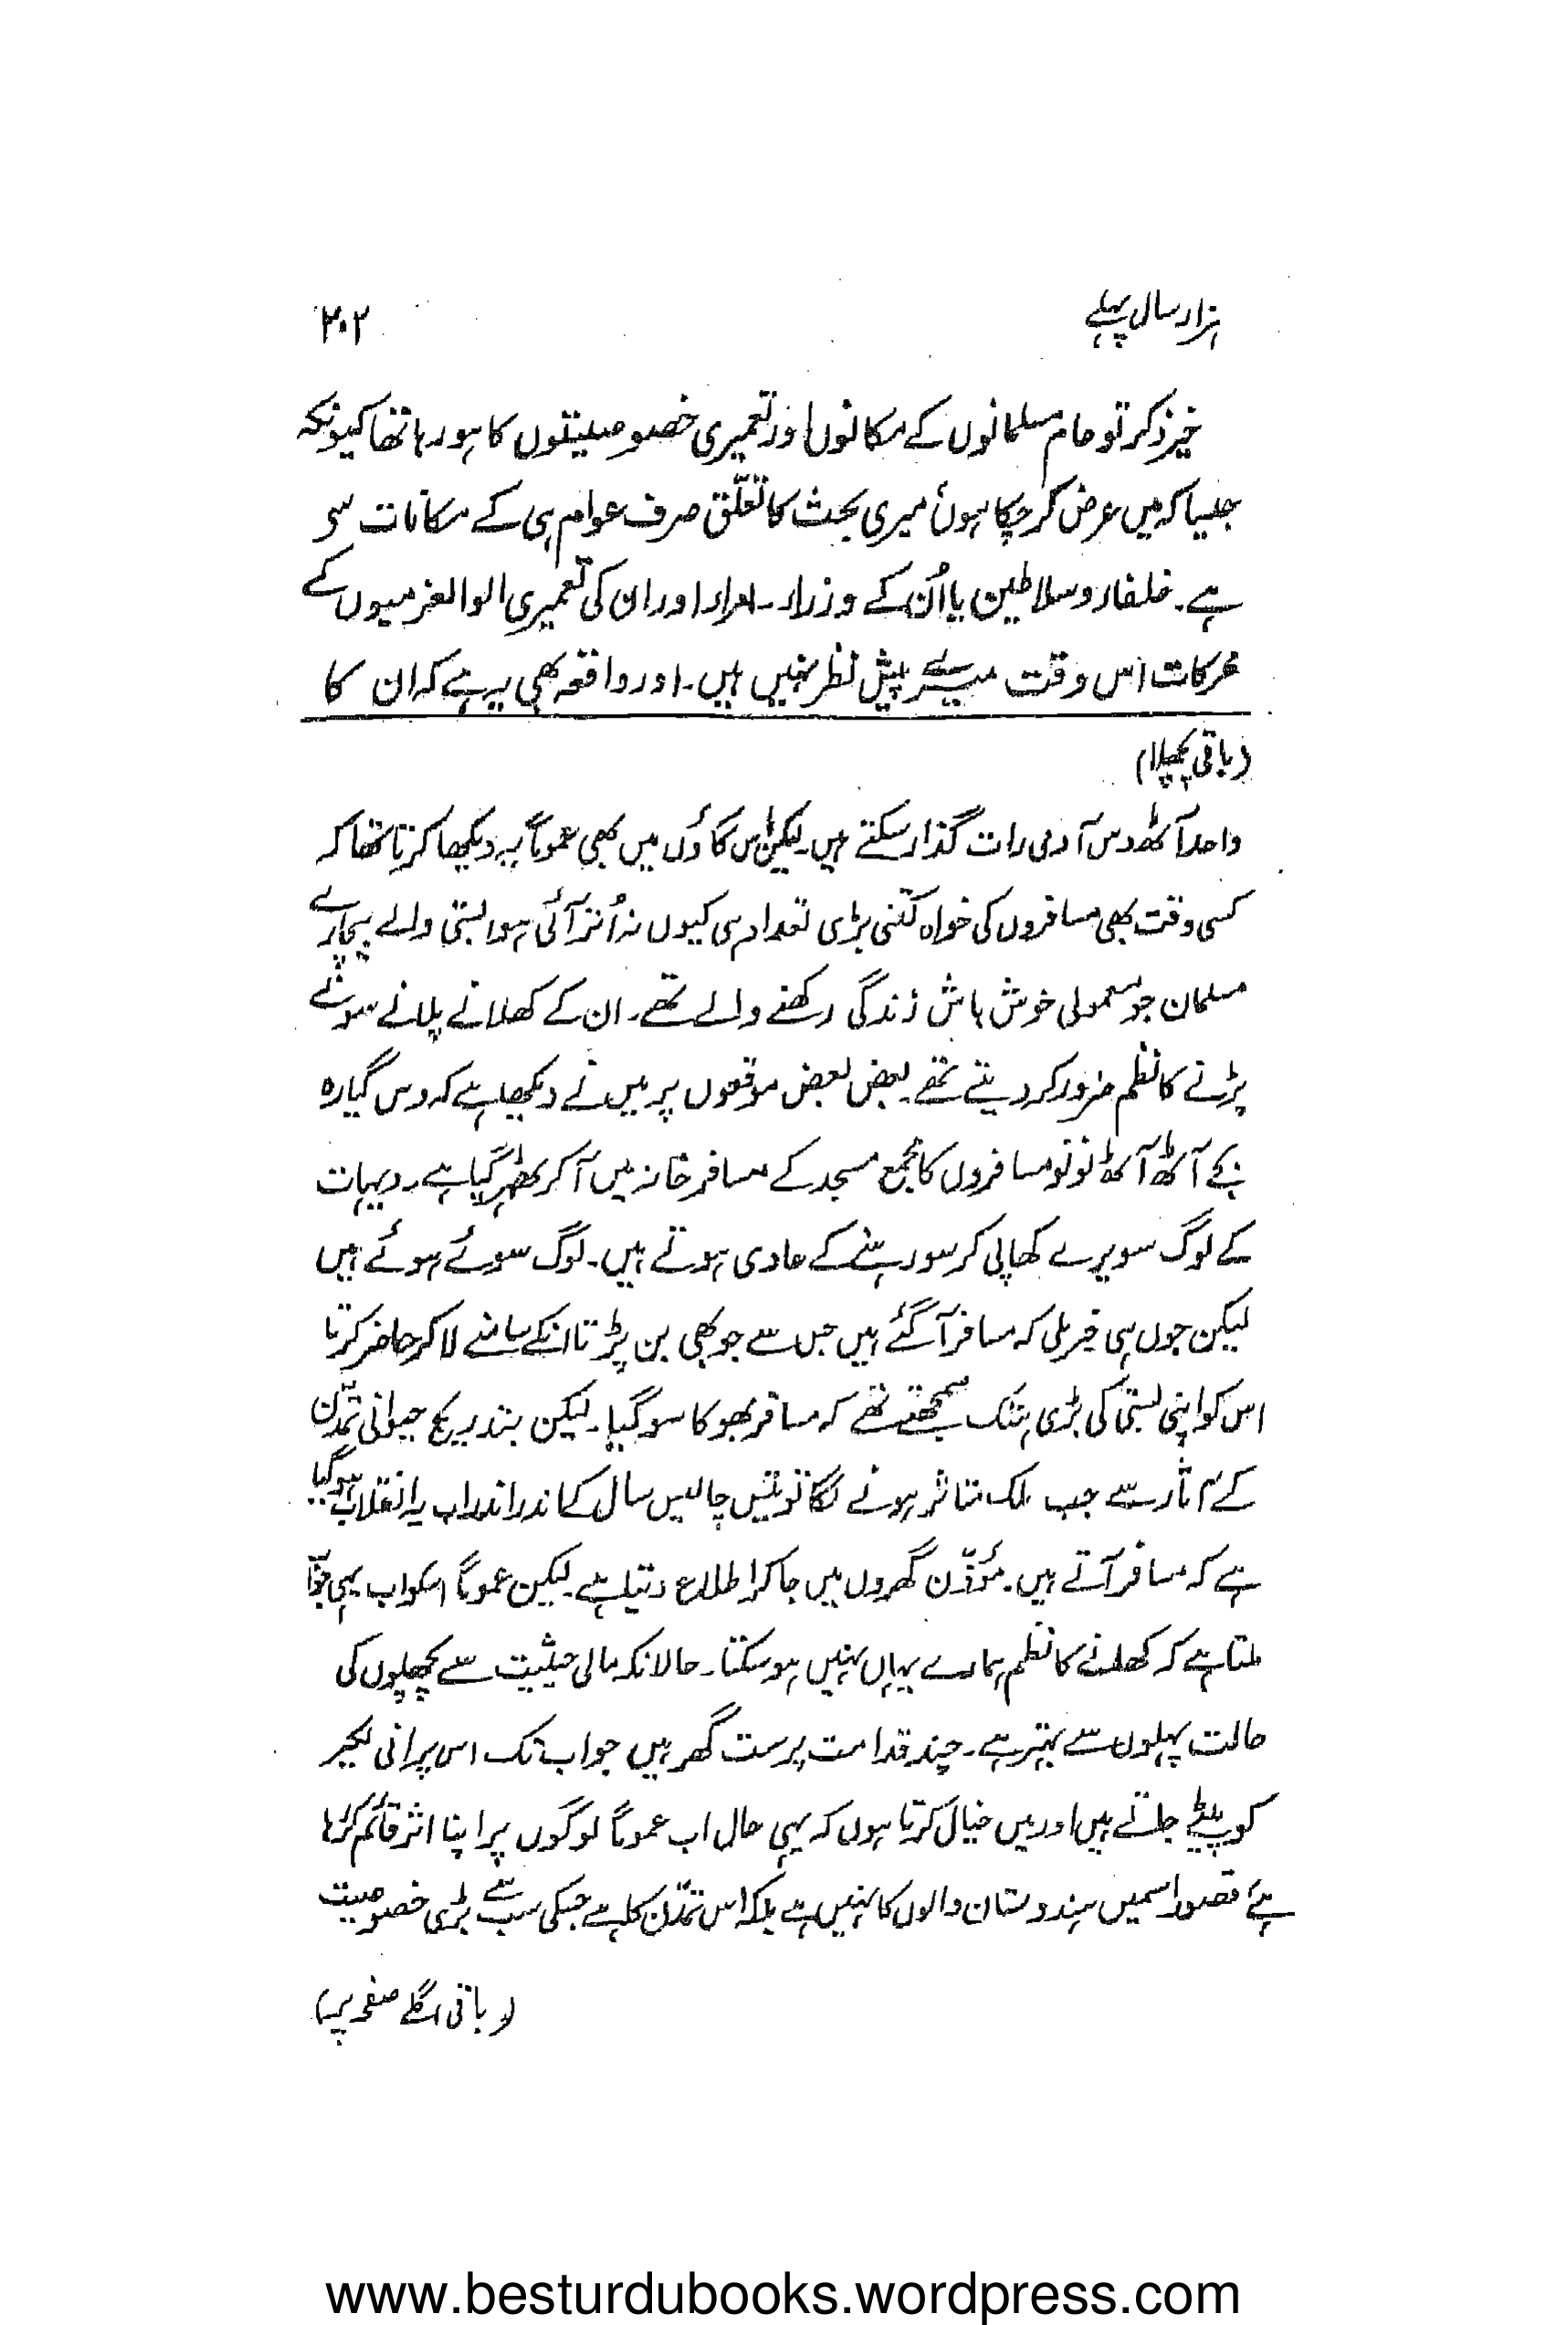 ہزار سال پہلے
۲۰۲
خیر ذکر تو عام مسلمانوں کے مکانوں اور تعمیری خصوصیتوں کا ہو رہا تھا کیونکہ
جیسا کہ میں عرض کر چکا ہوں میری بحث کا تعلّق صرف عوام ہی کے مکانات سی
ہے۔ خلفاء و سلاطین یا اُن کے وزراء۔ امراء اور ان کی تعمیری الوالعزمیوں کے
محرکات اس وقت میرے پیش نظر نہیں ہیں۔ اور واقعہ بھی یہ ہے کہ ان کا
(باقی پچھلا)
واحد آٹھ دس آدمی رات گذار سکتے ہیں۔ لیکن اس گاؤں میں بھی عموماً یہ دیکھا کرتا تھا کہ
کسی وقت بھی مسافروں کی خواہ کتنی بڑی تعداد ہی کیوں نہ اُتر آئی ہو بستی والے بیچارے
مسلمان جو معمولی خوش باش زندگی رکھنے والے تھے۔ ان کے کھلانے پلانے سونے
پڑنے کا نظم ضرور کر دیتے تھے۔ بعض بعض موقعوں پر میں نے دیکھا ہے کہ دس گیارہ
بجے آٹھ آٹھ نو نو مسافروں کا مجمع مسجد کے مسافر خانہ میں آکر ٹھہر گیا ہے۔ دیہات
کے لوگ سویرے کھا پی کر سو رہنے کے عادی ہوتے ہیں۔ لوگ سوئے ہوئے ہیں
لیکن جوں ہی خبر ملی کہ مسافر آگئے ہیں جس سے جو بھی بن پڑتا انکے سامنے لا کر حاضر کرتا
اس کو اپنی بستی کی بڑی ہتک سمجھتے تھے کہ مسافر بھوکا سو گیا۔ لیکن بتدریج حیوانی تمدّن
کے آثار سے جب ملک متاثر ہونے لگا تو تیس چالیس سال کے اندر اندر اب یہ انقلاب ہو گیا
ہے کہ مسافر آتے ہیں۔ مؤذّن گھروں میں جاکر اطلاع دیتا ہے۔ لیکن عموماً اسکو اب یہی جواب
ملتا ہے کہ کھلانے کا نظم ہمارے یہاں نہیں ہو سکتا۔ حالانکہ مالی حیثیت سے پچھلوں کی
حالت پہلوں سے بہتر ہے۔ چند قدامت پرست گھر ہیں جو اب تک اس پرانی لکیر
کو پیٹے جاتے ہیں اور میں خیال کرتا ہوں کہ یہی حال اب عموماً لوگوں پر اپنا اثر قائم کر رہا
ہے قصور اسمیں ہندوستان والوں کا نہیں ہے بلکہ اس تمدّن کا ہے جسکی سب سے بڑی خصوصیت
(باقی اگلے صفحہ پر)
www.besturdubooks.wordpress.com